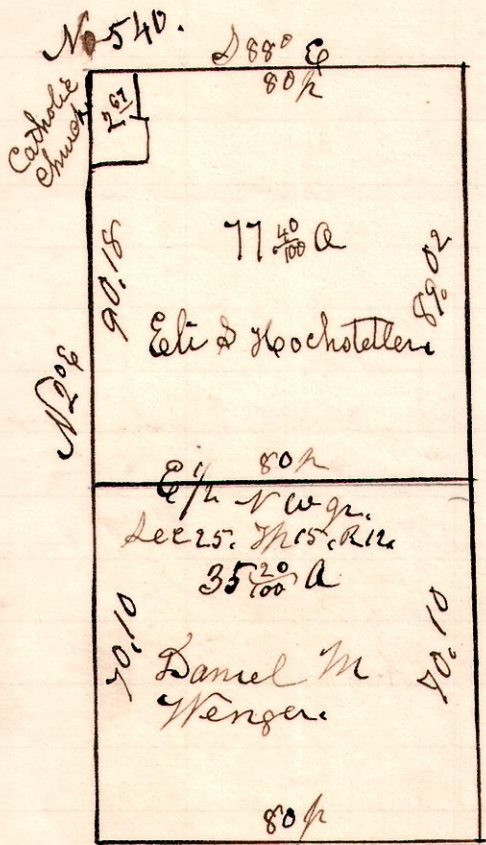 No 540.
S 88° E
80 p
Catholic
Church
2 67
77 40/100 A
90.18
89.02
Eli S Hochstetler.
N 2° E
80 p
E 1/2 N W qr.
Sec 25. Tp 15. R 12.
35 20/100 A
70.10
70.10
Daniel M
Wenger.
80 p